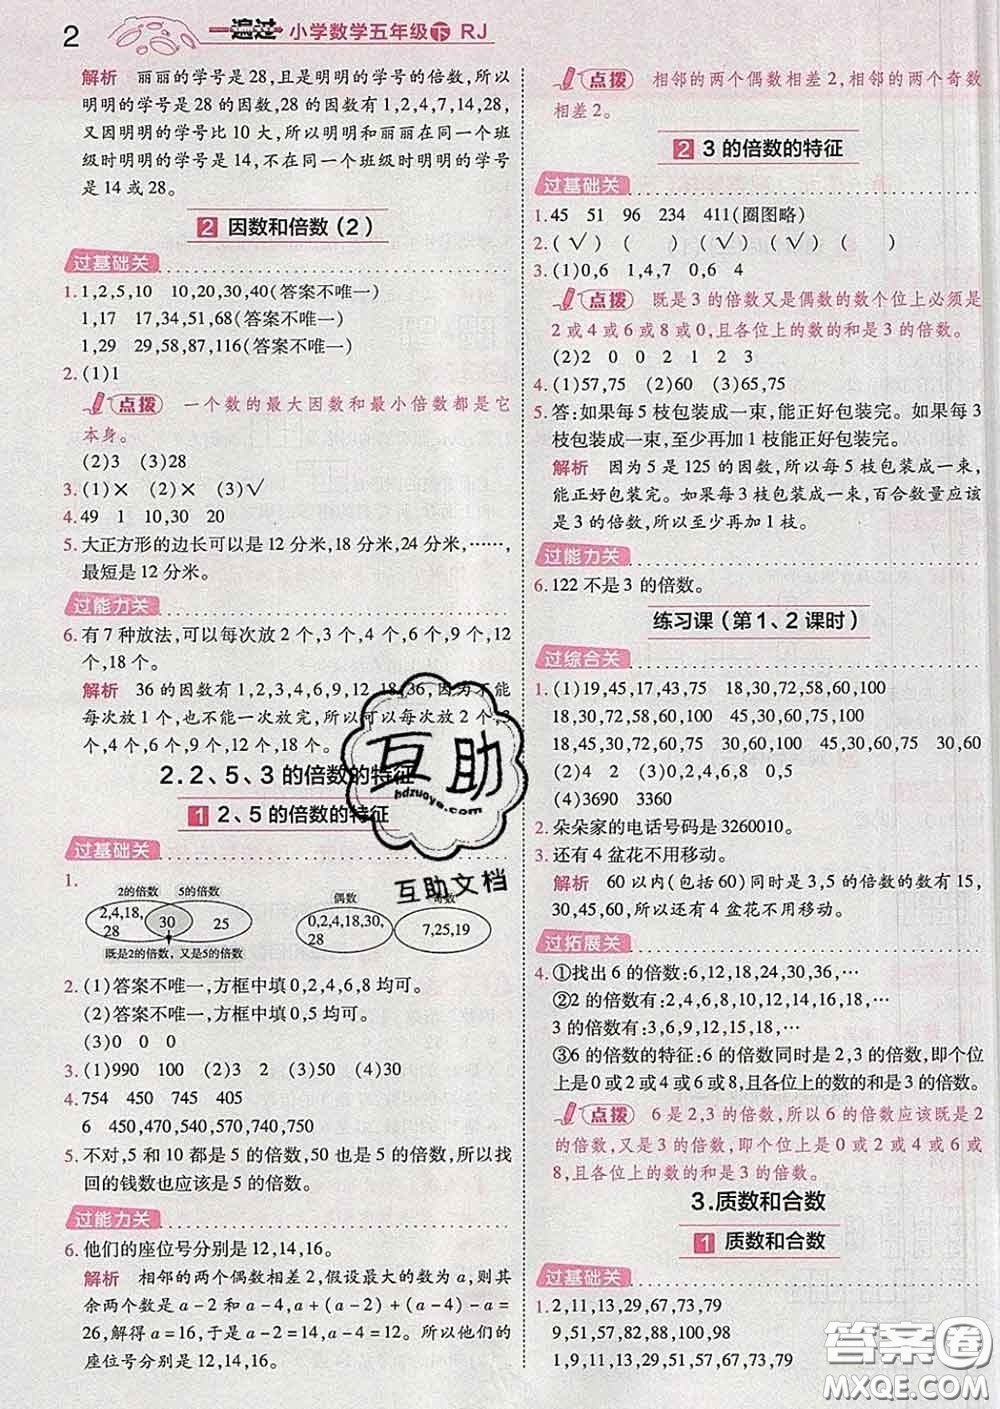 2
一遍过 小学数学五年级下 RJ
解析 丽丽的学号是28,且是明明的学号的倍数,所以
明明的学号是28的因数,28的因数有1,2,4,7,14,28,
又因明明的学号比10大,所以明明和丽丽在同一个班
级时明明的学号是14,不在同一个班级时明明的学号
是14或28。
2 因数和倍数(2)
过基础关
1. 1,2,5,10 10,20,30,40(答案不唯一)
1,17 17,34,51,68(答案不唯一)
1,29 29,58,87,116(答案不唯一)
2. (1)1
点拨 一个数的最大因数和最小倍数都是它
本身。
(2)3 (3)28
3. (1)× (2)× (3)√
4. 49 1 10,30 20
5. 大正方形的边长可以是12分米,18分米,24分米,……,
最短是12分米。
过能力关
6. 有7种放法,可以每次放2个,3个,4个,6个,9个,12
个,18个。
解析 36的因数有1,2,3,4,6,9,12,18,36,因为不能
每次放1个,也不能一次放完,所以可以每次放2个,3
个,4个,6个,9个,12个,18个。
2. 2、5、3的倍数的特征
1 2、5的倍数的特征
过基础关
1.
2的倍数 5的倍数 偶数 奇数
2,4,18,
28 30 25 0,2,4,18,30,
28 7,25,19
既是2的倍数,又是5的倍数
2. (1)答案不唯一,方框中填0,2,4,6,8均可。
(2)答案不唯一,方框中填0,5均可。
(3)0 0 0
3. (1)990 100 (2)3 (3)50 (4)30
4. 754 450 745 405
6 450,470,540,570,740,750
5. 不对,5和10都是5的倍数,50也是5的倍数,所以找
回的钱数也应该是5的倍数。
过能力关
6. 他们的座位号分别是12,14,16。
解析 相邻的两个偶数相差2,假设最大的数是a,则其
余两个数是a-2和a-4,a+(a-2)+(a-4)-a=
26,解得a=16,于是a-2=14,a-4=12。所以他们的
座位号分别是12,14,16。
点拨 相邻的两个偶数相差2,相邻的两个奇数
相差2。
2 3的倍数的特征
过基础关
1. 45 51 96 234 411(圈图略)
2. (√) ( ) ( ) (√) (√) ( )
3. (1)0,6 1,4,7 0,6 4
点拨 既是3的倍数又是偶数的数个位上必须是
2或4或6或8或0,且各位上的数的和是3的倍数。
(2)2 0 0 2 1 2 3
4. (1)57,75 (2)60 (3)65,75
5. 答:如果每5枝包装成一束,能正好包装完。如果每3
枝包装成一束,至少再加1枝能正好包装完。
解析 因为5是125的因数,所以每5枝包装成一束,
能正好包装完。如果每3枝包装成一束,百合数量应该
是3的倍数,所以至少再加1枝。
过能力关
6. 122不是3的倍数。
练习课(第1、2课时)
过综合关
1. (1)19,45,17,43,75 18,30,72,58,60,100
18,30,72,45,60,75 30,45,60,75,100
18,30,72,60 30,60,100 45,30,60,75 30,60
(2)4 0 (3)120 990
(4)3690 3360
2. 朵朵家的电话号码是3260010。
3. 还有4盆花不用移动。
解析 60以内(包括60)同时是3,5的倍数的数有15,
30,45,60,所以还有4盆花不用移动。
过拓展关
4. ①找出6的倍数:6,12,18,24,30,36,…
②2的倍数有:2,4,6,8,10,12,14,16,18,…
3的倍数有:3,6,9,12,15,18,…
③6的倍数的特征:6的倍数同时是2,3的倍数,即个位
上是0或2或4或6或8,且各位上的数的和是3的倍数。
点拨 6是2,3的倍数,所以6的倍数应该既是2
的倍数,又是3的倍数,即个位上是0或2或4或6或
8,且各位上的数的和是3的倍数。
3.质数和合数
1 质数和合数
过基础关
1. 2,11,13,29,67,73,79
9,51,57,87,91,98
1,9,11,13,29,51,57,67,73,79
互助
hdzuoye.com
互助文档
答案圈
MXQE.COM